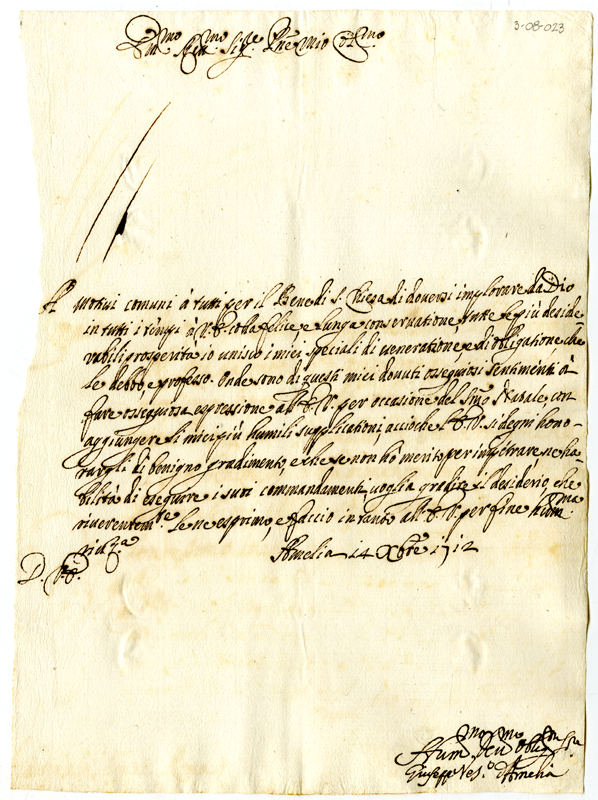 3-08-023
Em.mo Rev.mo Sig.re P̃ne Mio Col.mo
A' Motivi comuni à tutti per il Bene di S. Chiesa di doversi implorare da Dio
in tutti i tempi à V. E. cola felice e lunga conservatione, tutte le più deside
rabili prosperità io unisco i miei speciali di veneratione, e di obligatione, chẽ
le debbo, e professo. Onde sono di questi miei dovuti ossequiosi sentimenti à
fare ossequiosa espressione all' E. V. per occasione del S.mo Natale, con
aggiungere li miei più humili supplicationi, accioche l' E. V. si degni hono-
rargli di benigno gradimento, e che se non hò merito per impetrare ne ha
bilità di eseguire i suoi commandamenti, voglia gradire il desiderio, che
riverentem.te le ne esprimo, e faccio in tanto all' E. V. per fine hum.ma
river.za
Amelia 14 Xbre 1712
D. V. E.
Hum.mo Dev.mo Oblig.
Giuseppe Ves.o d'Amelia